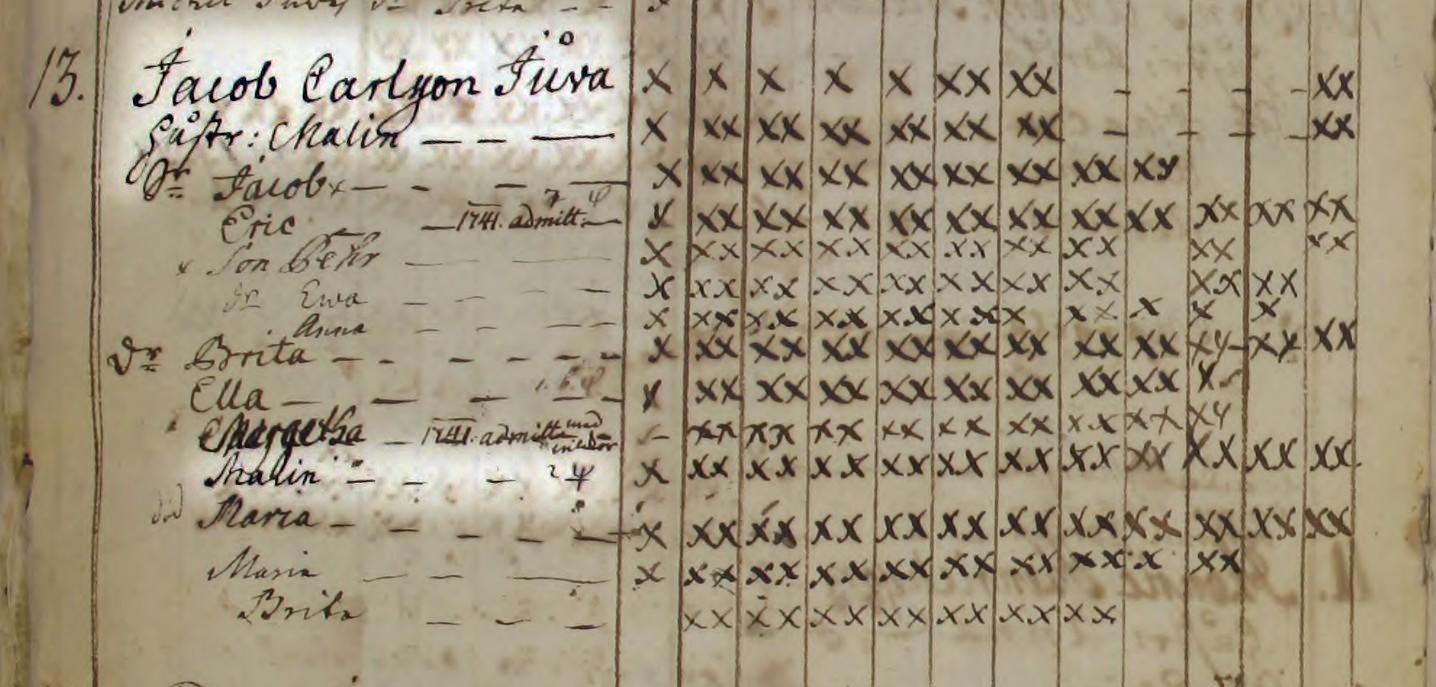 13. Jacob Carlson Juva X X X X X XX XX - - - - XX
Hustr: Malin — — — X XX XX XX XX XX XX - - - - XX
Dr Jacob × — - - — X XX XX XX XX XX XX XX XX
Eric — 1741. admitt. — X XX XX XX XX XX XX XX XX XX XX XX
× Son Pehr — — — X XX XX XX XX XX XX XX XX XX
dr Ewa — - - — X XX XX XX XX XX XX XX XX XX
Anna — - - — X XX XX XX XX XX X XX X X X
Dr Brita — - - - - - X XX XX XX XX XX XX XX XX XX XX XX
Ella — — - — - X XX XX XX XX XX XX XX XX X
Margetha — 1741. admitt. - XX XX XX XX XX XX XX XX XX
Malin - - - X XX XX XX XX XX XX XX XX XX XX XX
Maria — - - - — X XX XX XX XX XX XX XX XX XX XX XX
Maria — - — X XX XX XX XX XX XX XX X XX
Brita — - - XX XX XX XX XX XX XX